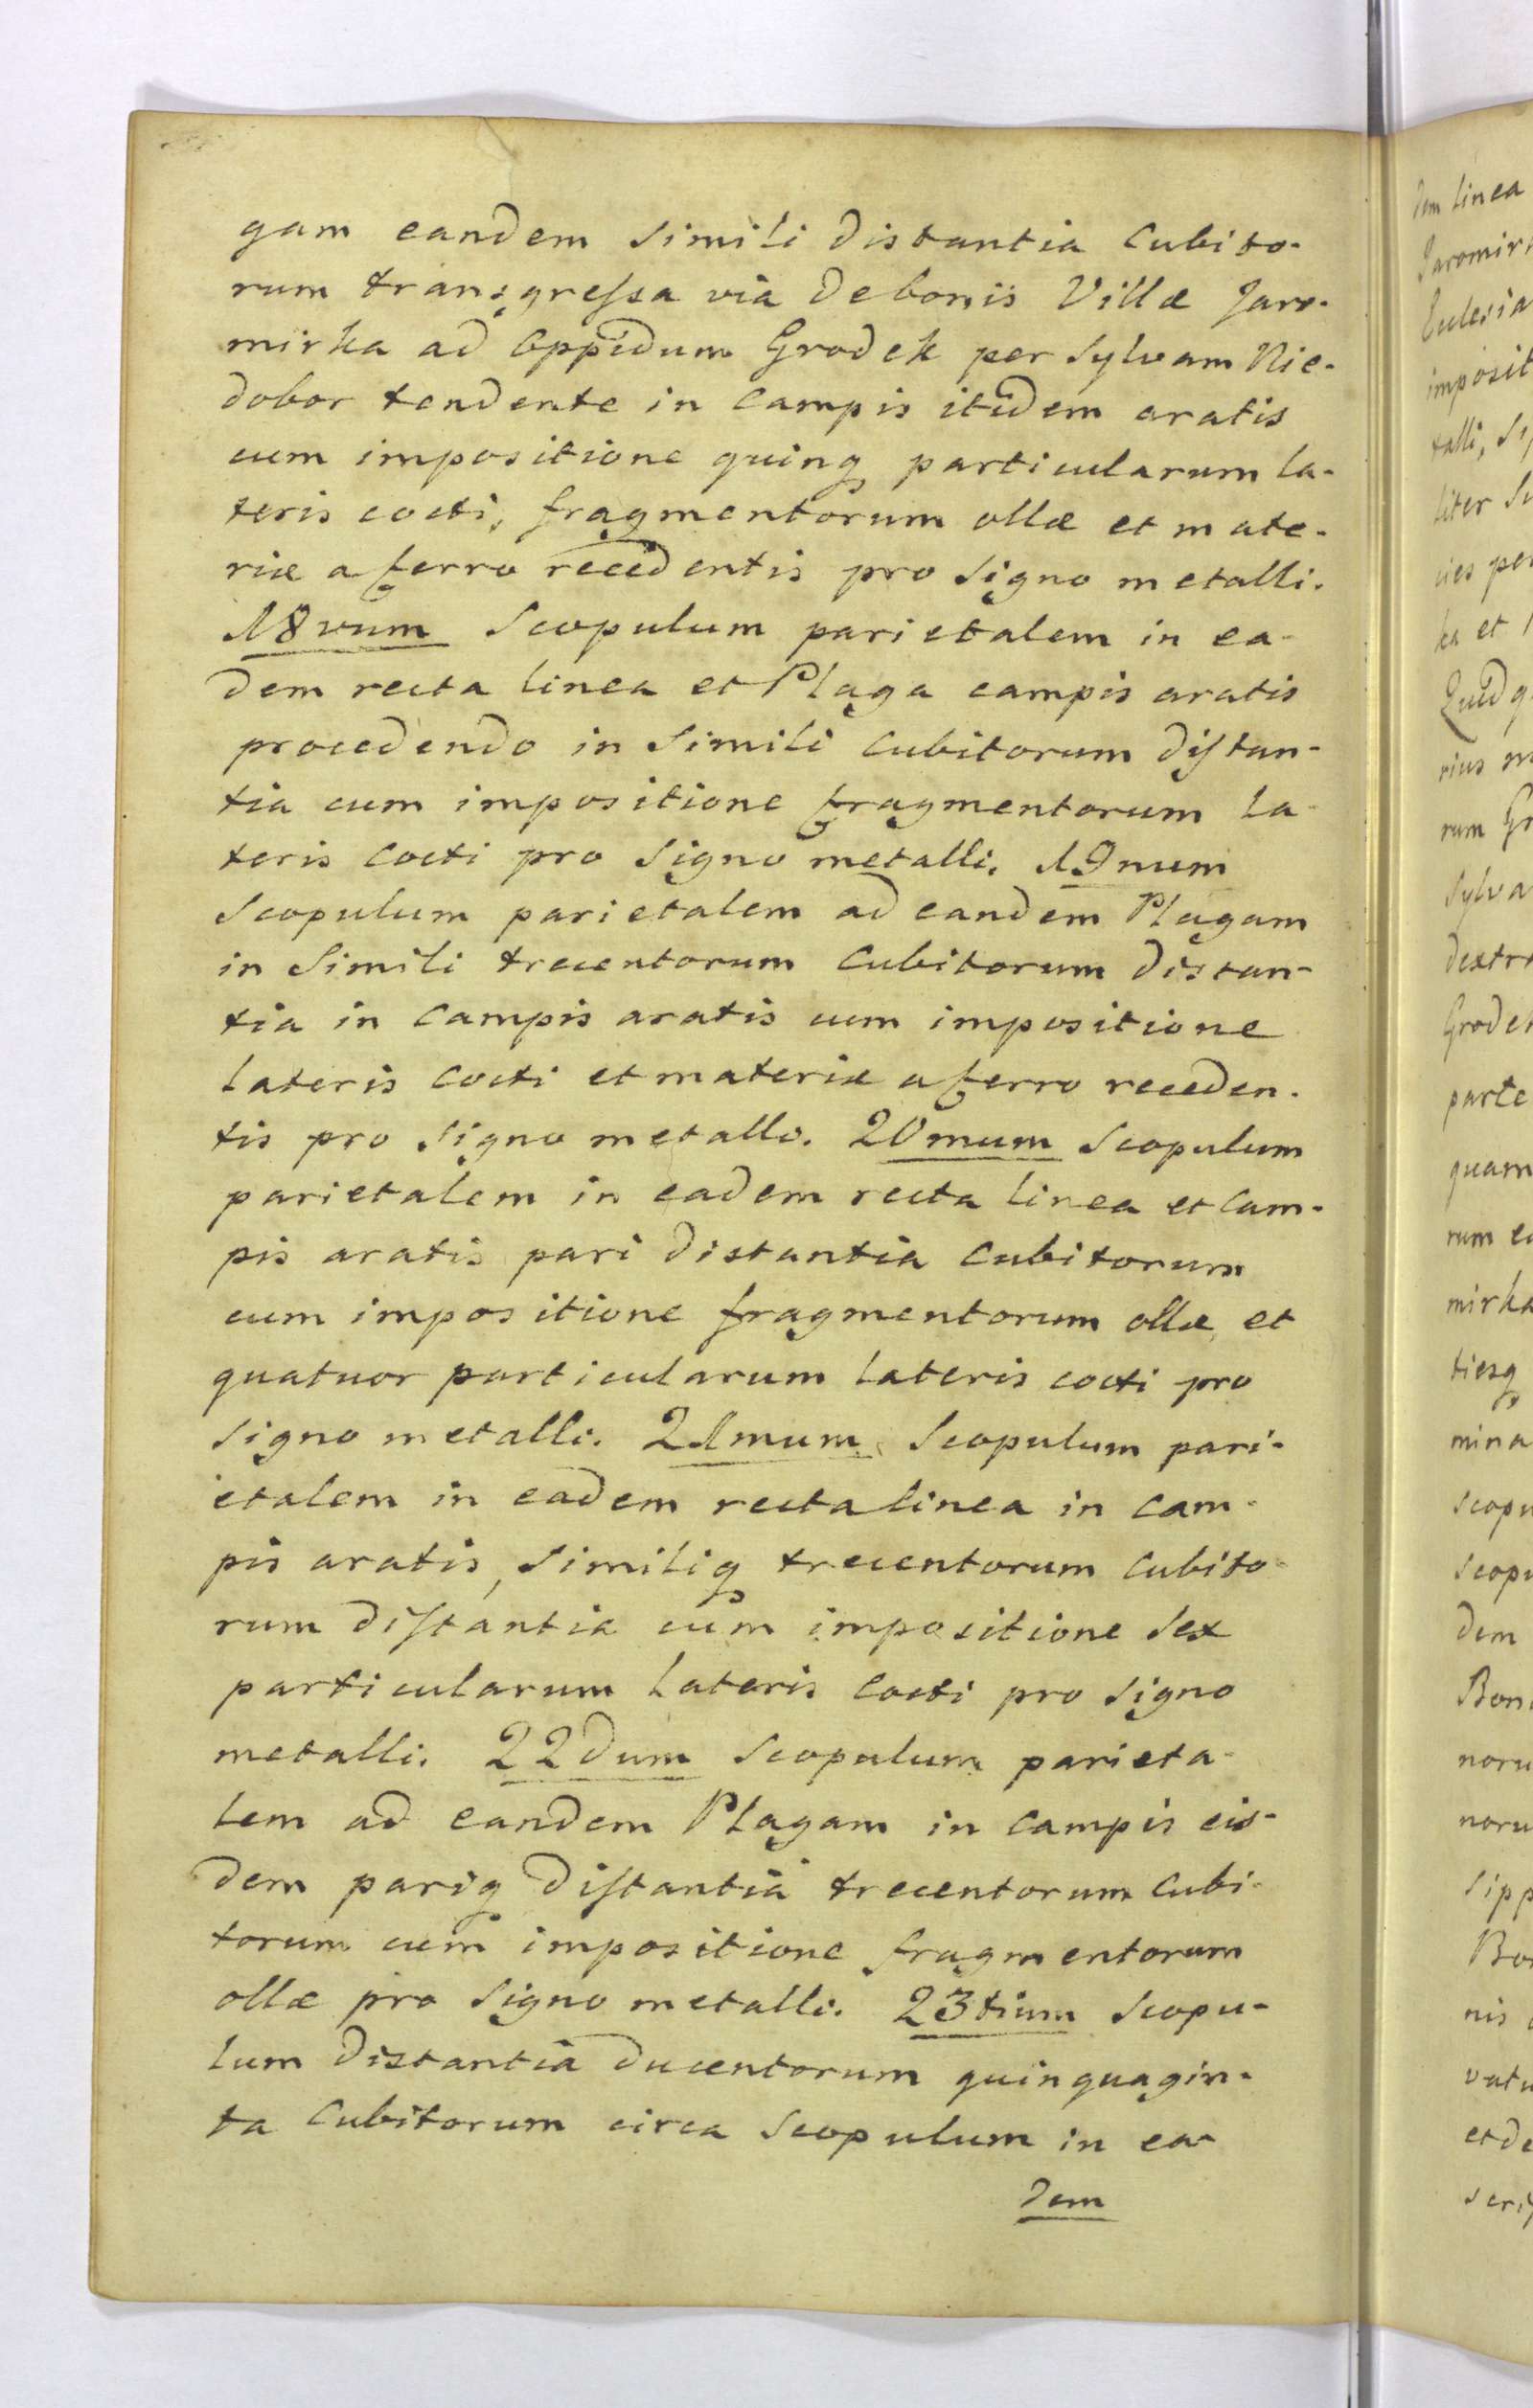 gam eandem simili distantia Cubito-
rum transgreſsa via de bonis Villæ Jaro-
mirka ad Oppidum Grodek per Sylvam Nie-
dobor tendente in Campis itidem aratis
cum impositione quinq particularum la-
teris cocti, fragmentorum ollæ et mate-
riæ a ferro recedentis pro signo metalli.
18vum Scopulum parietalem in ea-
dem recta linea et Plaga campis aratis
procedendo in simili Cubitorum diſtan-
tia cum impositione fragmentorum la-
teris Cocti pro signo metalli. 19num
Scopulum parietalem ad eandem Plagam
in simili trecentorum Cubitorum distan-
tia in Campis aratis cum impositione
lateris Cocti et materiæ a ferro receden-
tis pro signo metalli. 20mum Scopulum
parietalem in eadem recta linea et Cam-
pis aratis pari distantia Cubitorum
cum impositione fragmentorum ollæ et
quatuor particularum lateris cocti pro
signo metalli. 21mum Scopulum pari-
etalem in eadem recta linea in Cam-
pis aratis, similiq trecentorum Cubito-
rum diſtantia cum impositione sex
particularum lateris Cocti pro signo
metalli. 22dum Scopulum parieta-
lem ad eandem Plagam in Campis eis-
dem pariq diſtantia trecentorum Cubi-
torum cum impositione fragmentorum
ollæ pro signo metalli. 23tium Scopu-
lum distantia ducentorum quinquagin-
ta Cubitorum circa Scopulum in ea-
dem
dem linea
Eclesia
imposit
talli,
liter
cies
ka et
Quidq
rius
rum
Sylva
dextr
Grodek
parte
quam
rum
mirka
tiesq
mina
scopu
scopu
dem
Bon
noru
noru
sipp
Bo
nis
vatu
et de